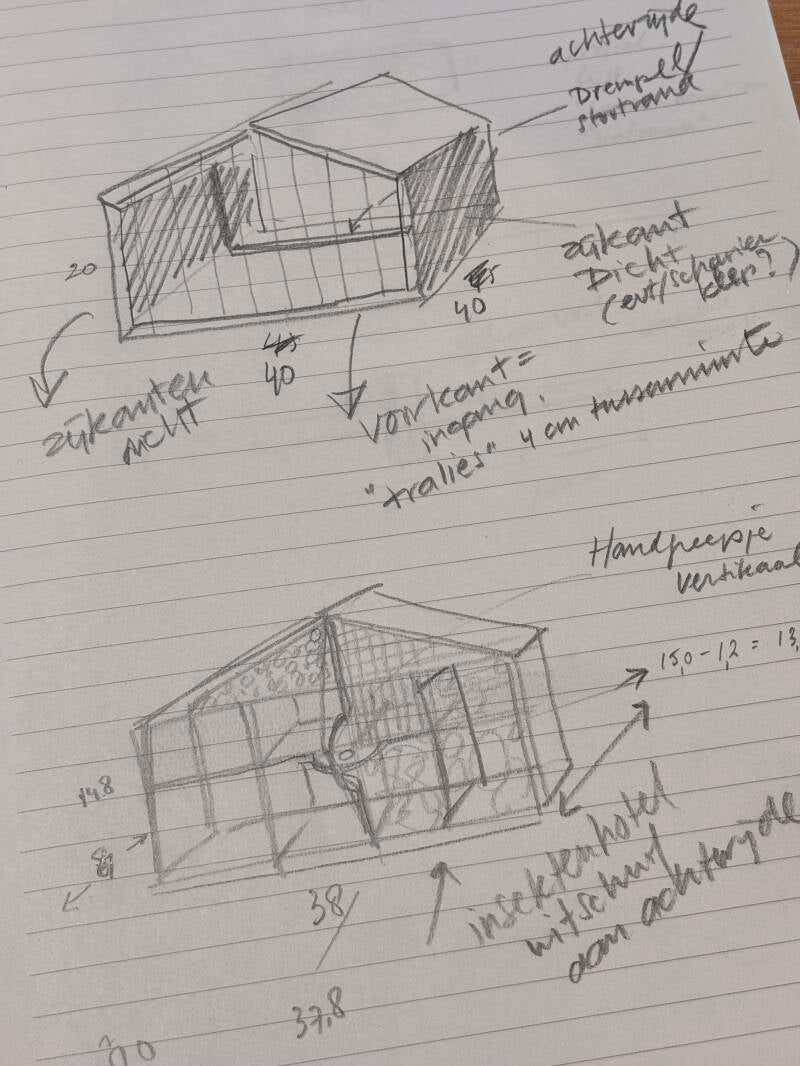 achterzijde
Drempel/
stootrand
20
zijkant
Dicht
(evt/scharnier
klep?)
40
40
zijkanten
dicht
voorkant =
ingang.
"tralies" 4 cm tussenruimte
Handgreepje
vertikaal
15,0 - 1,2 = 13,
14,8
insektenhotel
uitschuif
aan achterzijde
38/
37,8